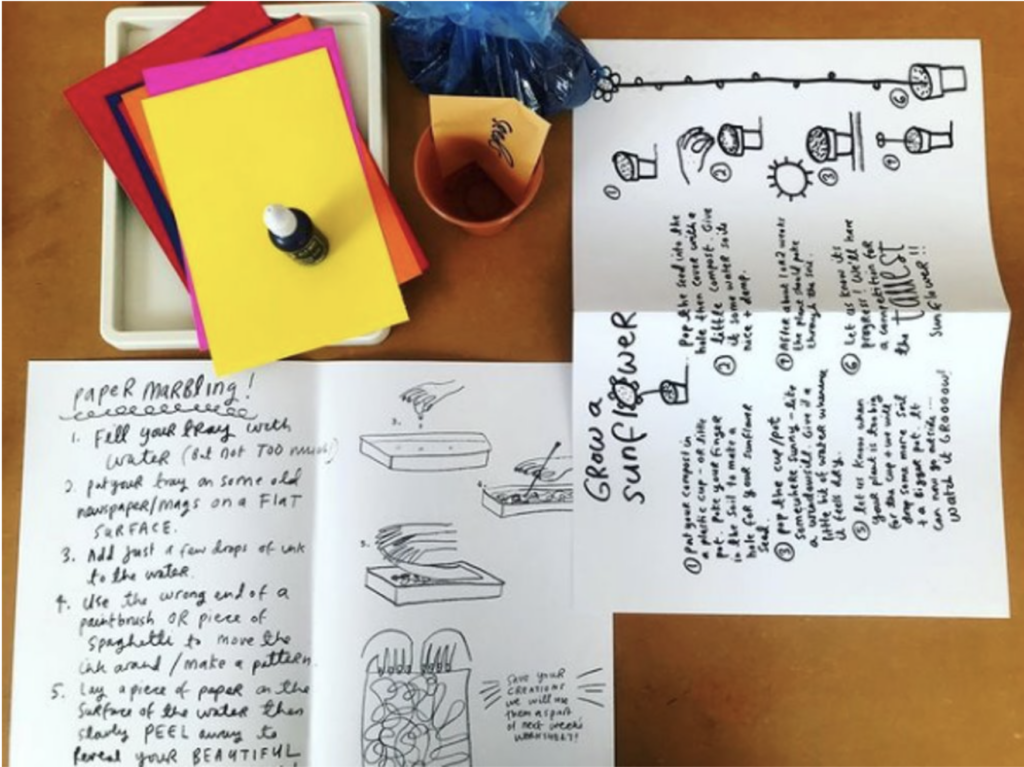 PAPER MARBLING!
1. Fill your tray with
water (But not TOO much!)
2. put your tray on some old
newspaper/mags on a FLAT
SURFACE.
3. Add just a few drops of ink
to the water.
4. Use the wrong end of a
paintbrush OR piece of
spaghetti to move the
ink around / make a pattern.
5. Lay a piece of paper on the
surface of the water then
slowly PEEL away to
reveal your BEAUTIFUL
3.
4.
5.
SAVE YOUR
CREATIONS
we will use
them as part
of next week's
WORKSHEET!
Seed
GROW a
sunflower
① put your compost in
a plastic cup - or little
pot. Poke your finger
in the soil to make a
hole for your sunflower
seed
② Pop the seed into the
hole then cover with a
little compost. Give
it some water soils
nice + damp.
③ pop the cup/pot
somewhere sunny - like
a windowsill. Give it a
little bit of water whenever
it feels dry.
④ After about 1 or 2 weeks
the plant should poke
through the soil.
⑤ Let us know when
your plant is too big
for the cup + we will
drop some more soil
+ a bigger pot. It
can now go outside ....
WATCH it GROOOOW!
⑥ Let us know its
progress! We'll have
a competition for
the TALLEST
sunflower!!
①
②
③
④
⑥